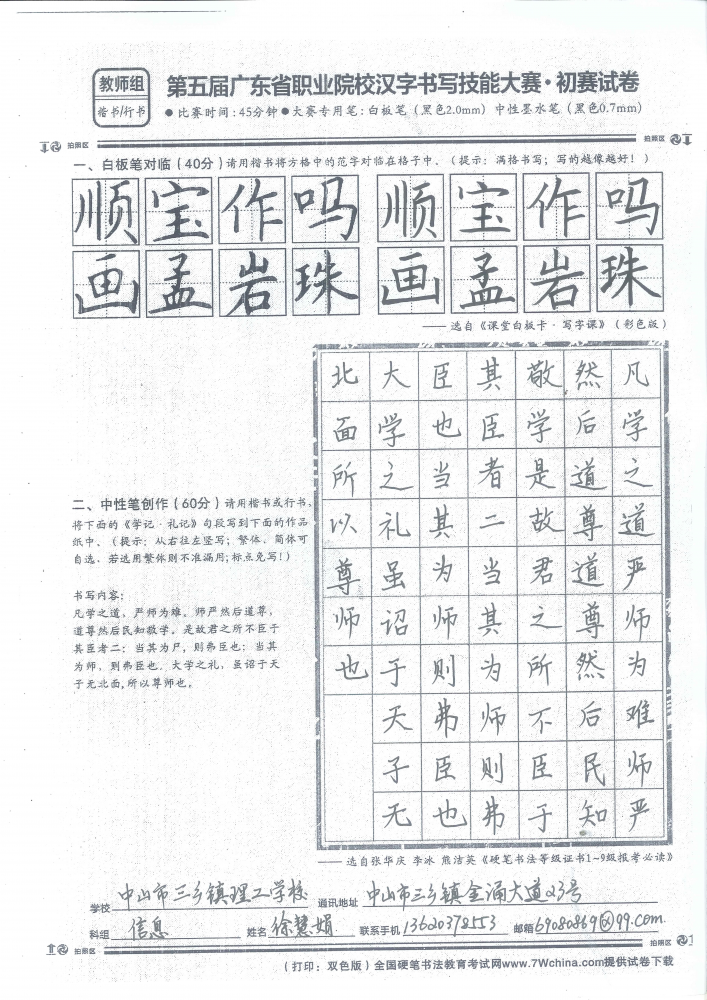 教师组
楷书/行书
第五届广东省职业院校汉字书写技能大赛·初赛试卷
●比赛时间:45分钟●大赛专用笔:白板笔(黑色2.0mm)中性墨水笔(黑色0.7mm)
拍照区 拍照区
一、白板笔对临(40分)请用楷书将方格中的范字对临在格子中、(提示:满格书写;写的越像越好!)
顺宝作吗 顺宝作吗
画孟岩珠 画孟岩珠
——选自《课堂白板卡·写字课》(彩色版)
二、中性笔创作(60分)请用楷书或行书,
将下面的《学记·礼记》句段写到下面的作品
纸中、(提示:从右往左竖写;繁体、简体可
自选、若选用繁体则不准漏用;标点免写!)
书写内容:
凡学之道，严师为难。师严然后道尊，
道尊然后民知敬学。是故君之所不臣于
其臣者二：当其为尸，则弗臣也；当其
为师，则弗臣也。大学之礼，虽诏于天
子无北面,所以尊师也。
凡学之道严师为难师严
然后道尊道尊然后民知
敬学是故君之所不臣于
其臣者二当其为师则弗
臣也当其为师则弗臣也
大学之礼虽诏于天子无
北面所以尊师也
——选自张华庆 李冰 熊洁英《硬笔书法等级证书1~9级报考必读》
学校 中山市三乡镇理工学校 通讯地址 中山市三乡镇金涌大道23号
科组 信息 姓名 徐慧娟 联系手机 13620378553 邮箱 69080869@qq.com
拍照区 拍照区
(打印:双色版)全国硬笔书法教育考试网www.7Wchina.com提供试卷下载